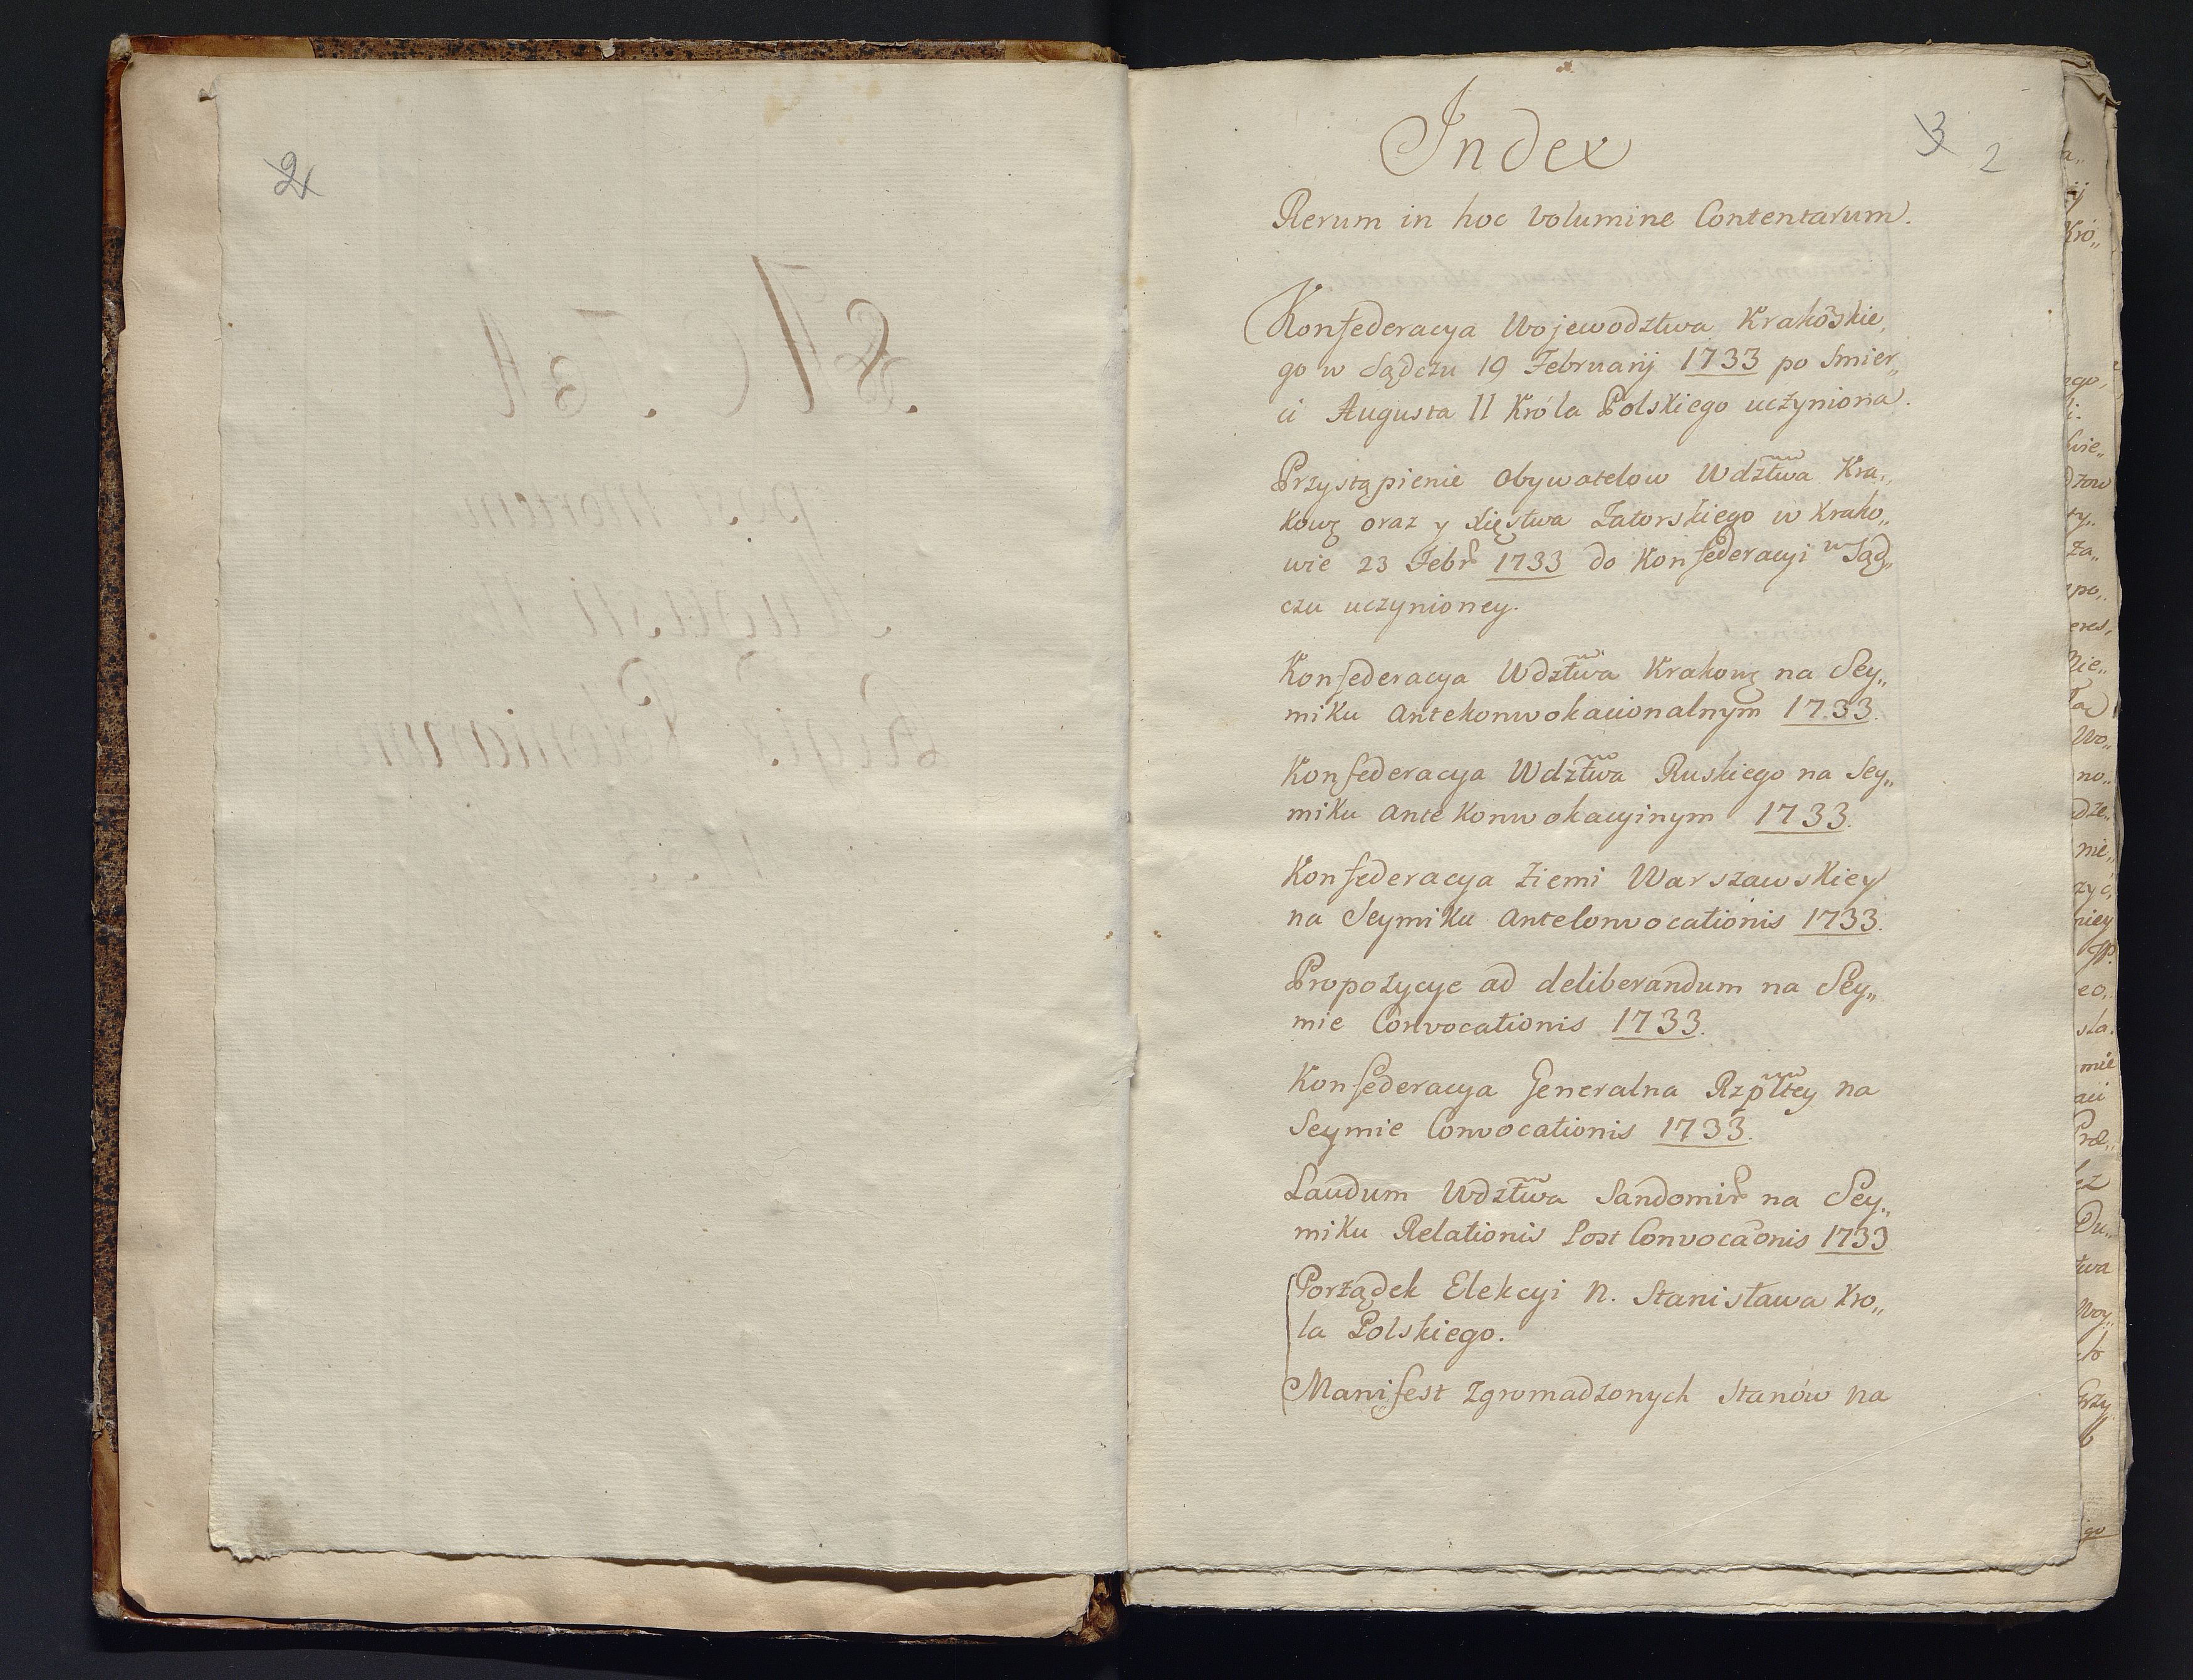 2
3
2
Index
Rerum in hoc volumine Contentarum.
Konfederacya Wojewodztwa Krakōskie,,
go w Sądczu 19 Februarij 1733 po Smier,,
ci Augusta II Króla Polskiego uczyniona.
Przystąpienie Obywatelow Wdztwa Kra,,
kowg oraz y Xięstwa Zatorskiego w Krako,,
wie 23 Febr 1733 do Konfederacyi w Sąd,,
czu uczynioney.
Konfederacya Wdztwa Krakowg na Sey,,
miku Antekonwokacionalnym 1733.
Konfederacya Wdztwa Ruskiego na Sey,,
miku Ante Konwokacyinym 1733.
Konfederacya Ziemi Warszawskiey
na Seymiku AnteConvocationis 1733.
Propozycye ad deliberandum na Sey,,
mie Convocationis 1733.
Konfederacya Generalna Rzpltey na
Seymie Convocationis 1733.
Laudum Wdztwa Sandomir na Sey,,
miku Relationis Post Convocaōnis 1733
Porządek Elekcyi N. Stanisława Kro,,
la Polskiego.
Manifest zgromadzonych Stanów na